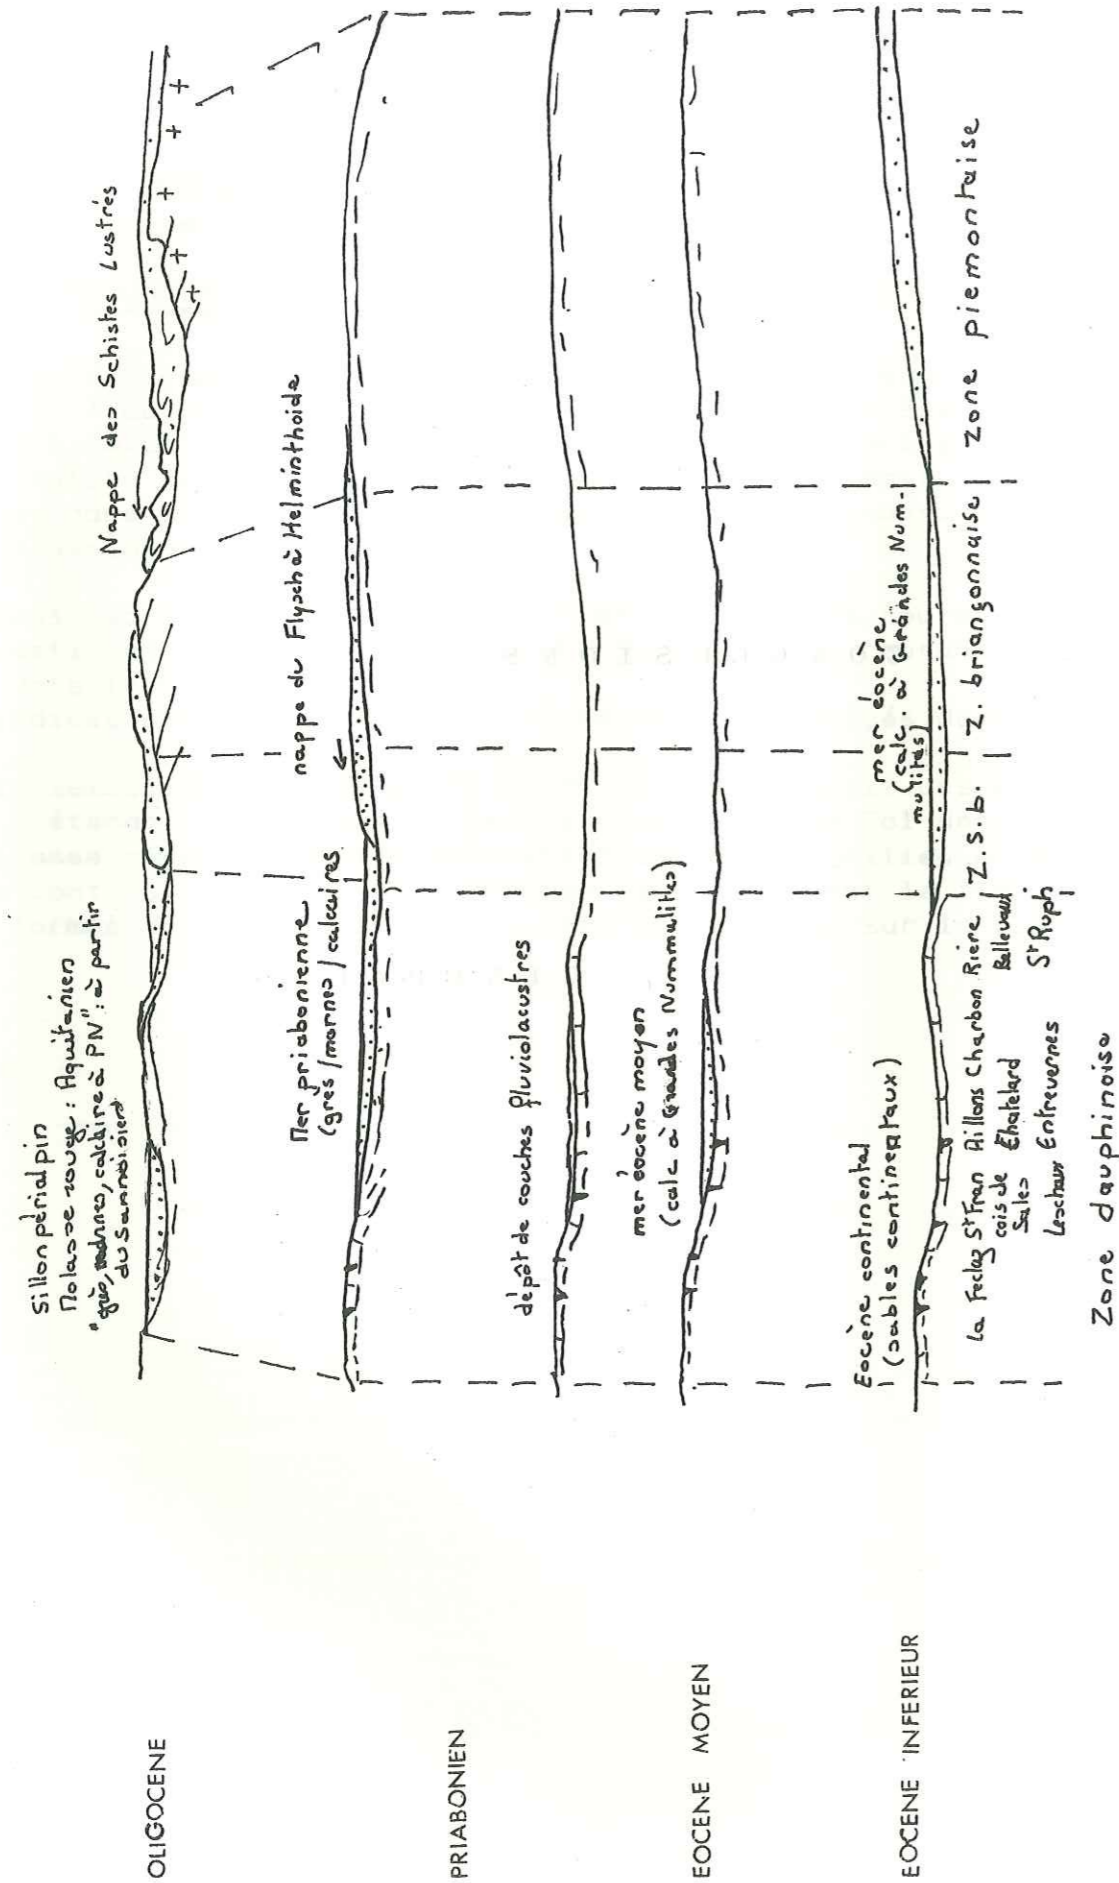 OLIGOCENE
Sillon périalpin
Molasse rouge : Aquitanien
"grès, marnes, calcaire à PN" : à partir
du Sannoisien
Nappe des Schistes Lustrés
PRIABONIEN
Mer priabonienne
(grès / marnes / calcaires
nappe du Flysch à Helminthoide
dépôt de couches fluviolacustres
EOCENE MOYEN
mer éocène moyen
(calc à Grandes Nummulites)
EOCENE INFERIEUR
Eocène continental
(sables continentaux)
mer éocène
(calc. à Grandes Num-
mulites)
La Feclaz St Fran Aillons Charbon Rière
cois de Chatelard Bellevaux
Sales St Ruph
Leschaux Entrevernes
Z.s.b.
Z. briançonnaise
Zone piemontaise
Zone dauphinoise